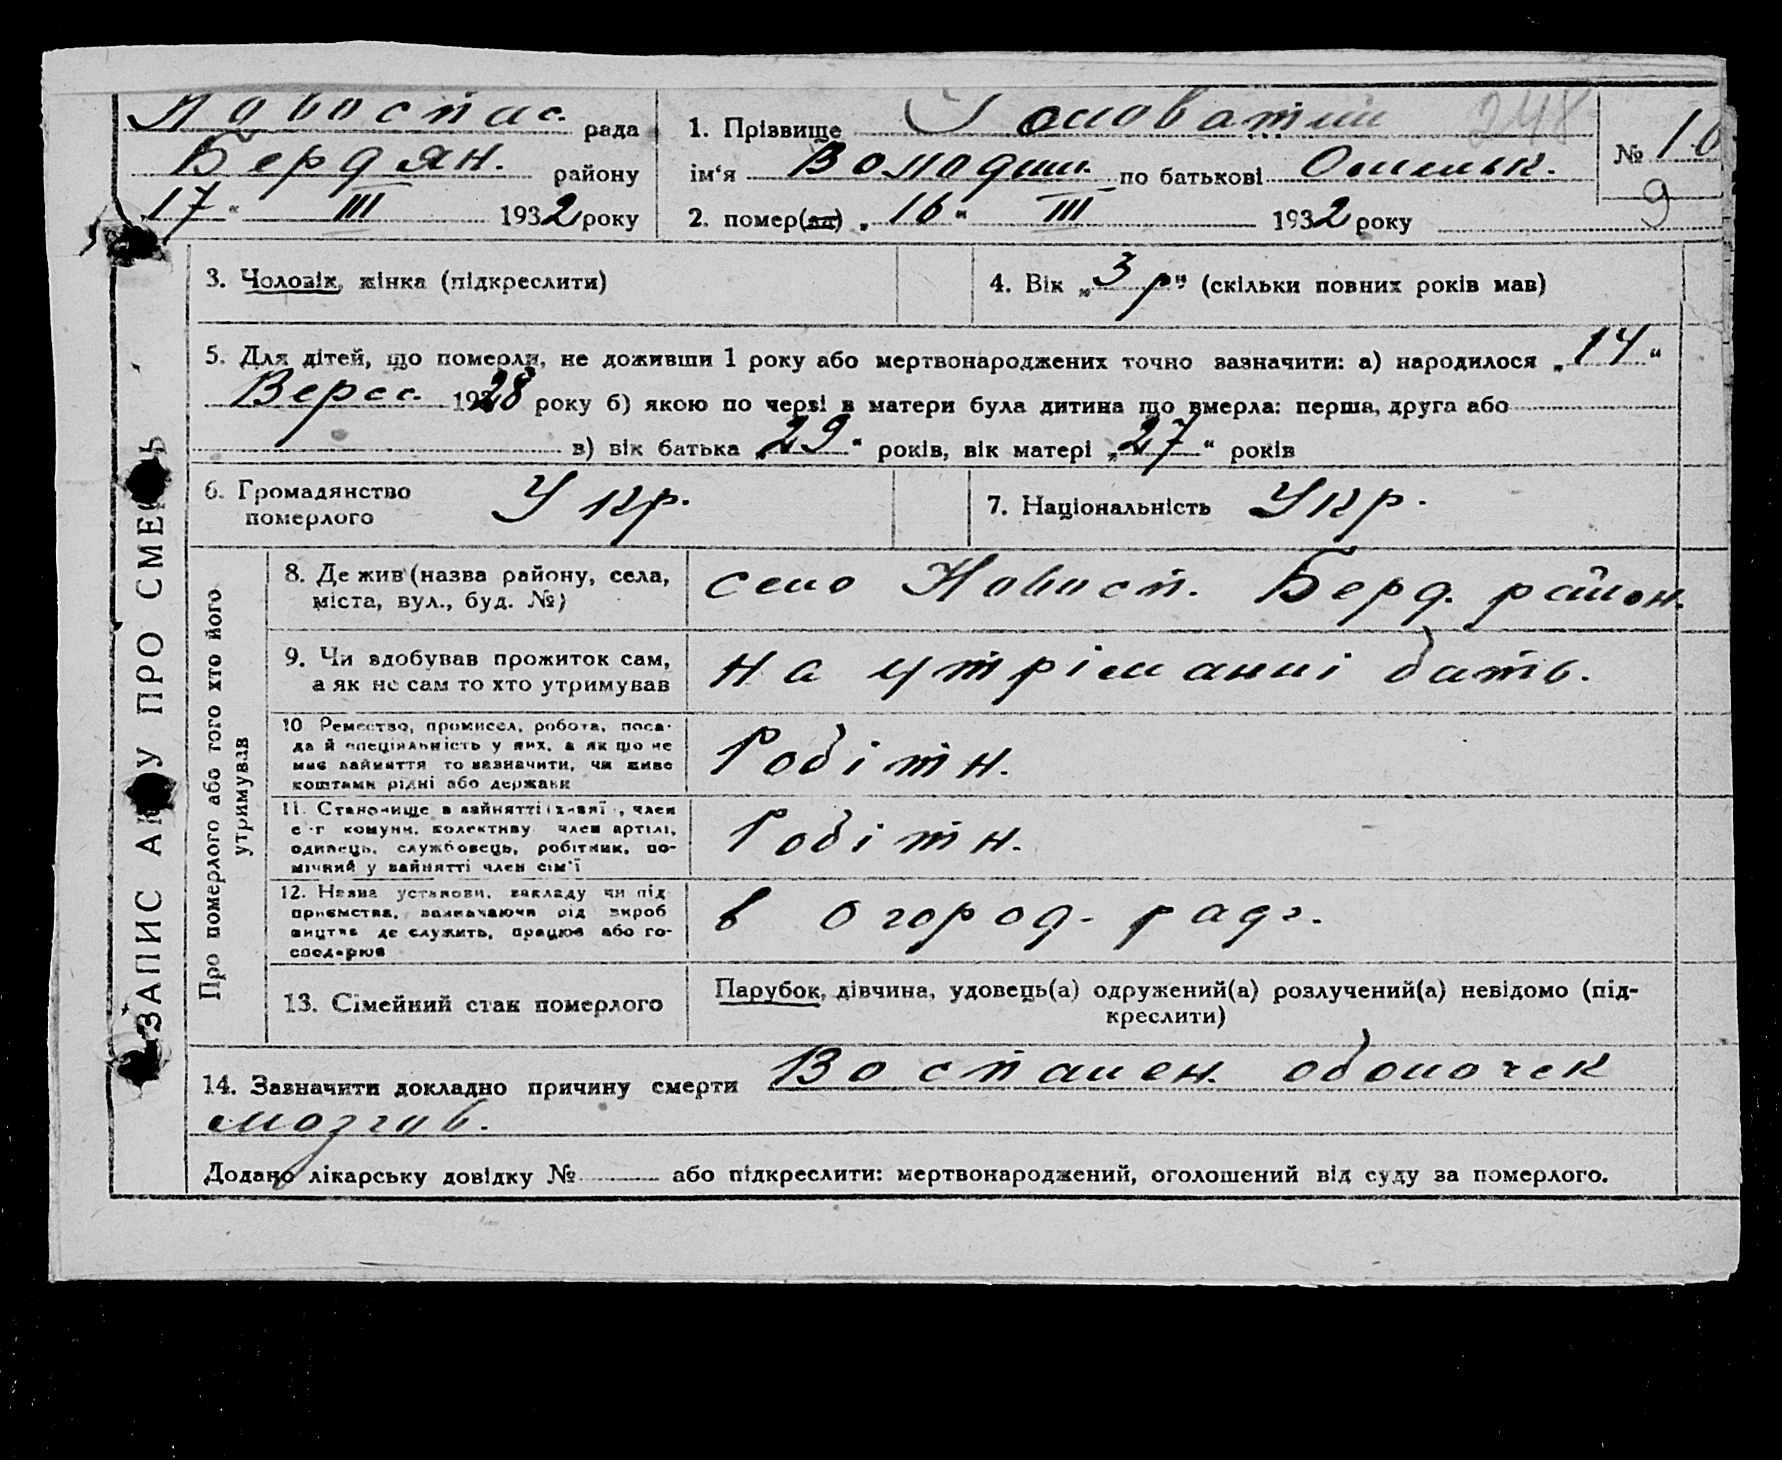 Новоспас. рада
Бердян. району
„17“ III 1932 року
1. Прізвище Головатий 248
ім‘я Володим. по батькові Омельк.
2. помер(ла) „16“ III 1932 року
№ 10
9
ЗАПИС АКТУ ПРО СМЕРТЬ
3. Чоловік, жінка (підкреслити)
4. Вік „3 р“ (скільки повних років мав)
5. Для дітей, що померли, не доживши 1 року або мертвонароджених точно зазначити: а) народилося „14“
Верес. 1928 року б) якою по черзі в матери була дитина що вмерла: перша, друга або
в) вік батька „29“ років, вік матері „27“ років
6. Громадянство
померлого Укр.
7. Національність Укр.
Про померлого або того хто його
утримував
8. Де жив (назва району, села,
міста, вул., буд. №)
село Новосп. Берд. район.
9. Чи здобував прожиток сам,
а як не сам то хто утримував
на утріманні бать.
10 Ремество, промисел, робота, поса-
да й спеціяльність у них, а як що не
має зайняття то зазначити, чи живе
коштами рідні або держави
Робітн.
11. Становище в зайнятті (хазяї , член
с-г комуни, колективу член артілі,
одинець, службовець, робітник, по-
мічний у зайнятті член сім'ї
Робітн.
12. Назва установи, закладу чи під
приємства, зазначаючи рід вироб
ництва де служить, працює або го-
сподарює
в огород. радг.
13. Сімейний стак померлого
Парубок, дівчина, удовець(а) одружений(а) розлучений(а) невідомо (під-
креслити)
14. Зазначити докладно причину смерти Воспален. оболочек
мозгов.
Додано лікарську довідку № або підкреслити: мертвонароджений, оголошений від суду за померлого.